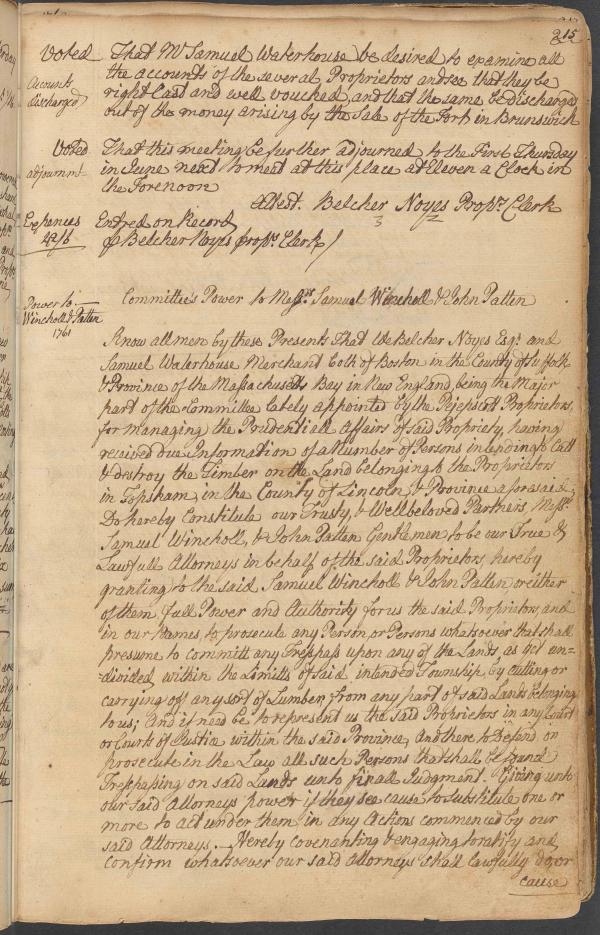 215
Voted That Mr Samuel Waterhouse be desired to examine all
the accounts of the several Proprietors and see that they be
Accounts discharged
right Cast and well vouched, and that the same be discharged
out of the money arising by the Sale of the Fort in Brunswick
Voted That this meeting be further adjourned to the First Thursday
adjournmt
in June next to meet at this place at Eleven a Clock in
the Forenoon
attest. Belcher Noyes Propr. Clerk
Entred on Record
Belcher Noyes propr. Clerk
Power to Wincholl & Patten 1761
Committee's Power to Messrs Samuel Wincholl & John Patten
Know all men by these Presents That We Belcher Noyes Esqr. and
Samuel Waterhouse Marchand both of Boston in the County of Suffolk
& Province of the Massachusetts Bay in New England, being the Major
part of the Committee lately appointed by the Pejepscott Proprietors,
for managing the Prudentiall Affairs of said Propriety, having
received due Information of a Number of Persons intending to Cutt
& destroy the Timber on the Land belonging to the Proprietors
in Topsham, in the County of Lincoln, & Province aforesaid;
Do hereby Constitute our Trusty, & Wellbeloved Partners, Messrs.
Samuel Wincholl, & John Patten Gentlemen to be our True &
Lawfull Attorneys in behalf of the said Proprietors, hereby
granting to the said Samuel Wincholl & John Patten or either
of them full Power and Authority for us the said Proprietors, and
in our Names, to prosecute any Person, or Persons whatsoever that shall
presume to committ any Trespass upon any of the Lands as yet un=
divided within the Limitts of said intended Township, by cutting or
carrying off any sort of Lumber, from any part of said Lands belonging
to us; and if need be to represent us the said Proprietors in any Court
or Courts of Justice within the said Province, and there to Defend or
prosecute in the Law all such Persons that shall be found
Trespassing on said Lands unto finall Judgment. Giving unto
our said Attorneys power if they see cause to substitute one or
more to act under them in any Actions commenced by our
said Attorneys. Hereby covenanting & engaging to ratify and
confirm whatsoever our said Attorneys shall lawfully do, or
cause